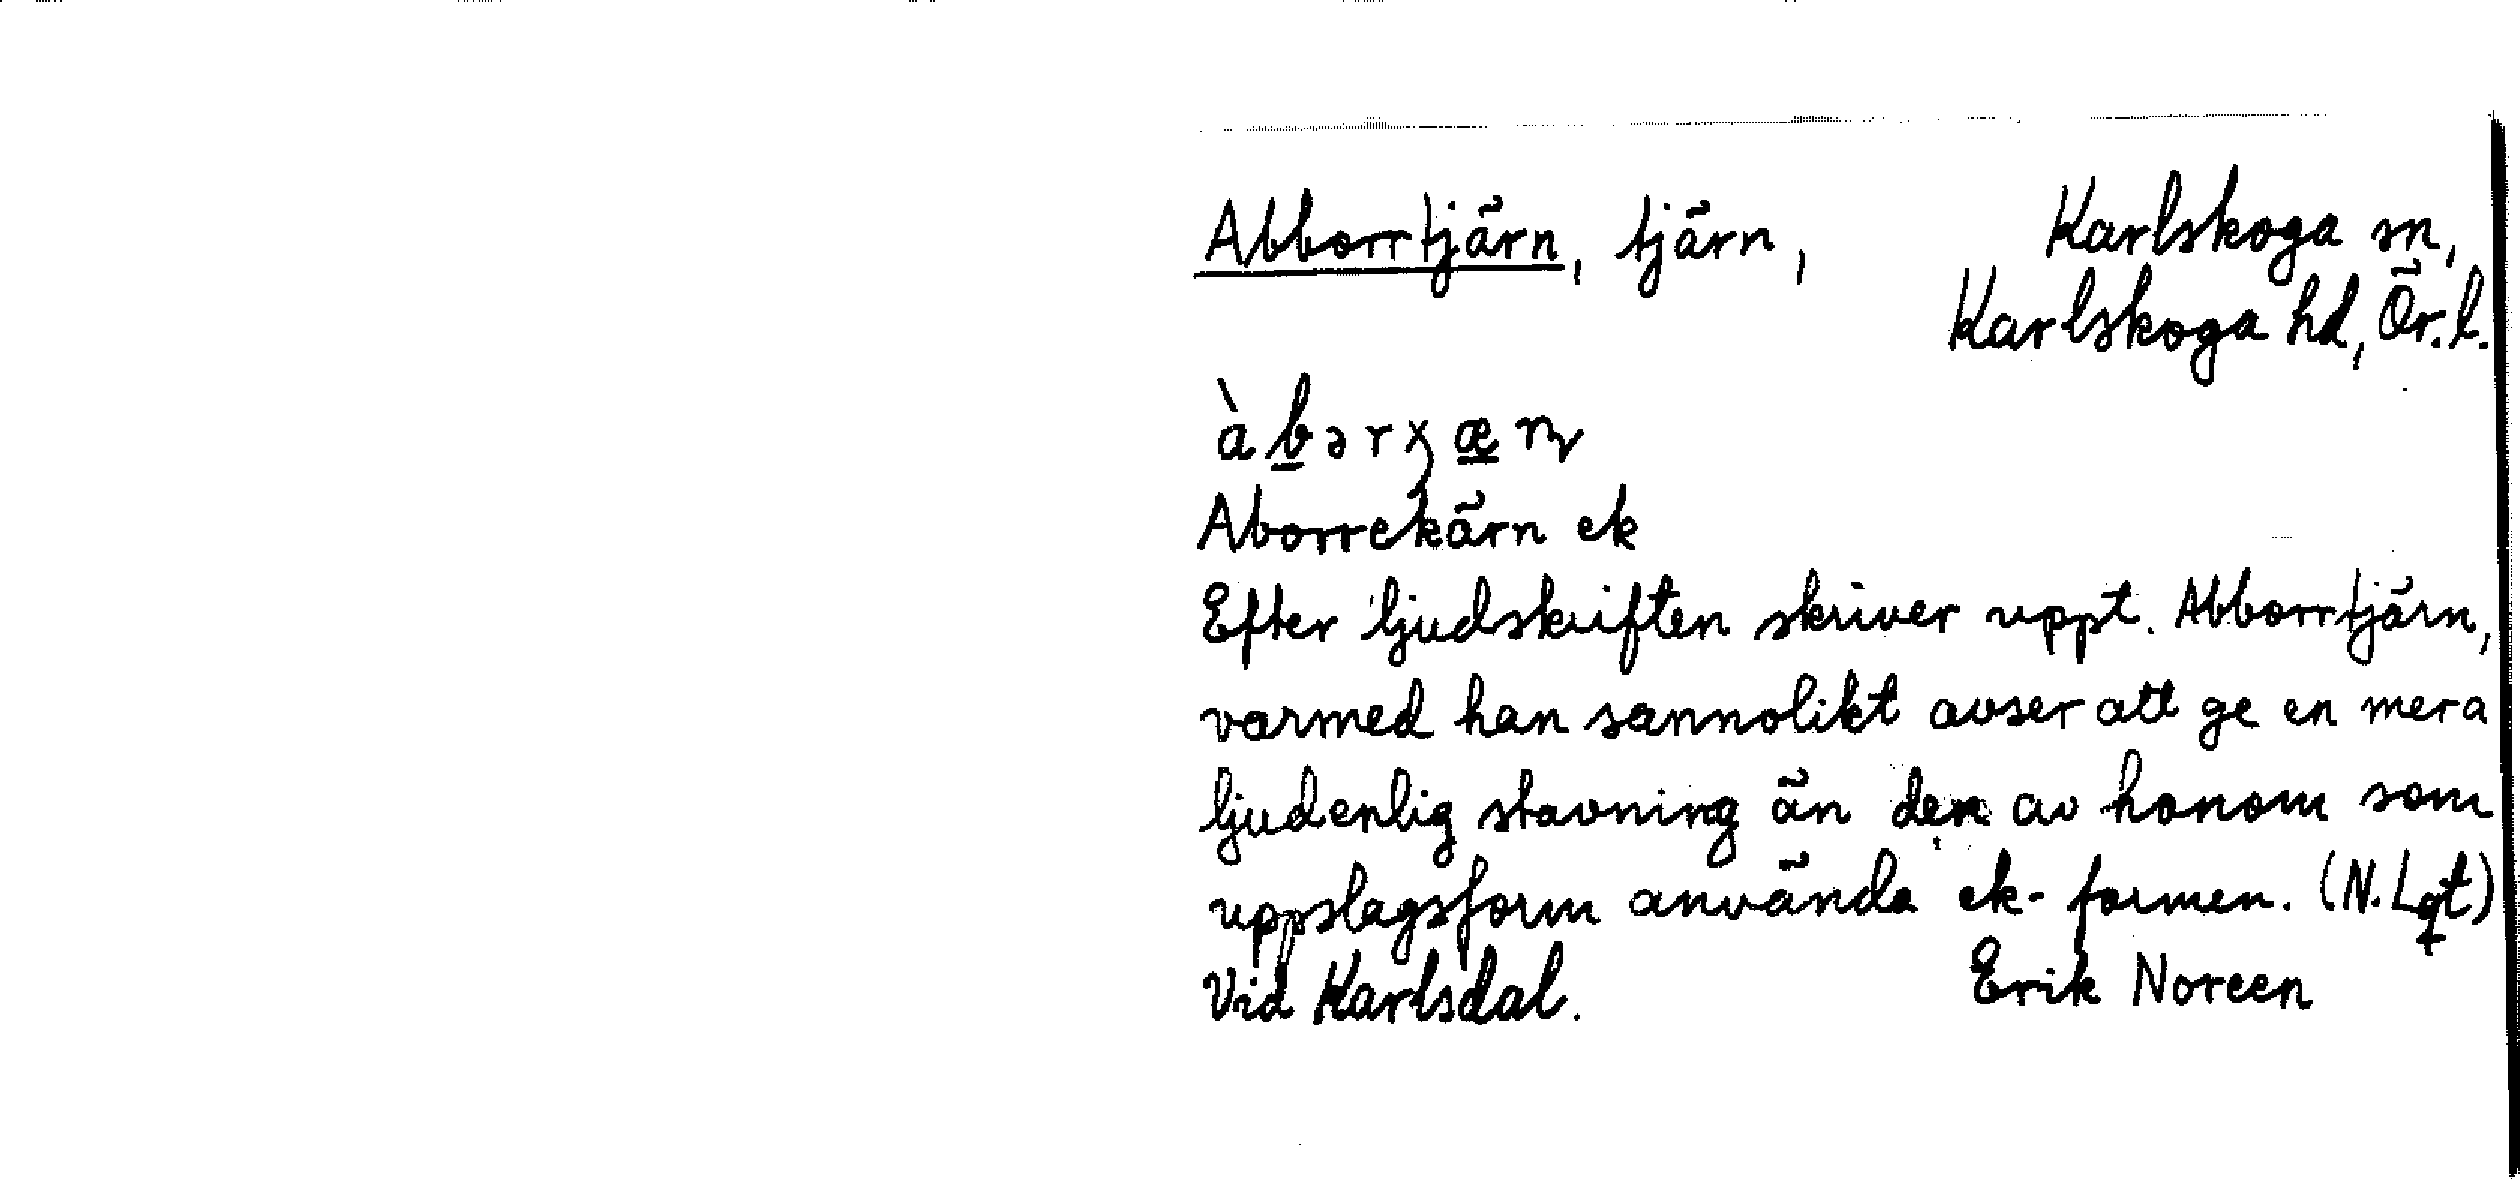 Abborrtjärn, tjärn, Karlskoga sn,
Karlskoga hd, Ör.l.
àb̲ərχæ̲ɳ
Aborrekärn ek
Efter ljudskriften skriver uppt. Abborrtjärn,
varmed han sannolikt avser att ge en mera
ljudenlig stavning än den av honom som
uppslagsform använda ek-formen. (N. Lqt)
Vid Karlsdal. Erik Noreen